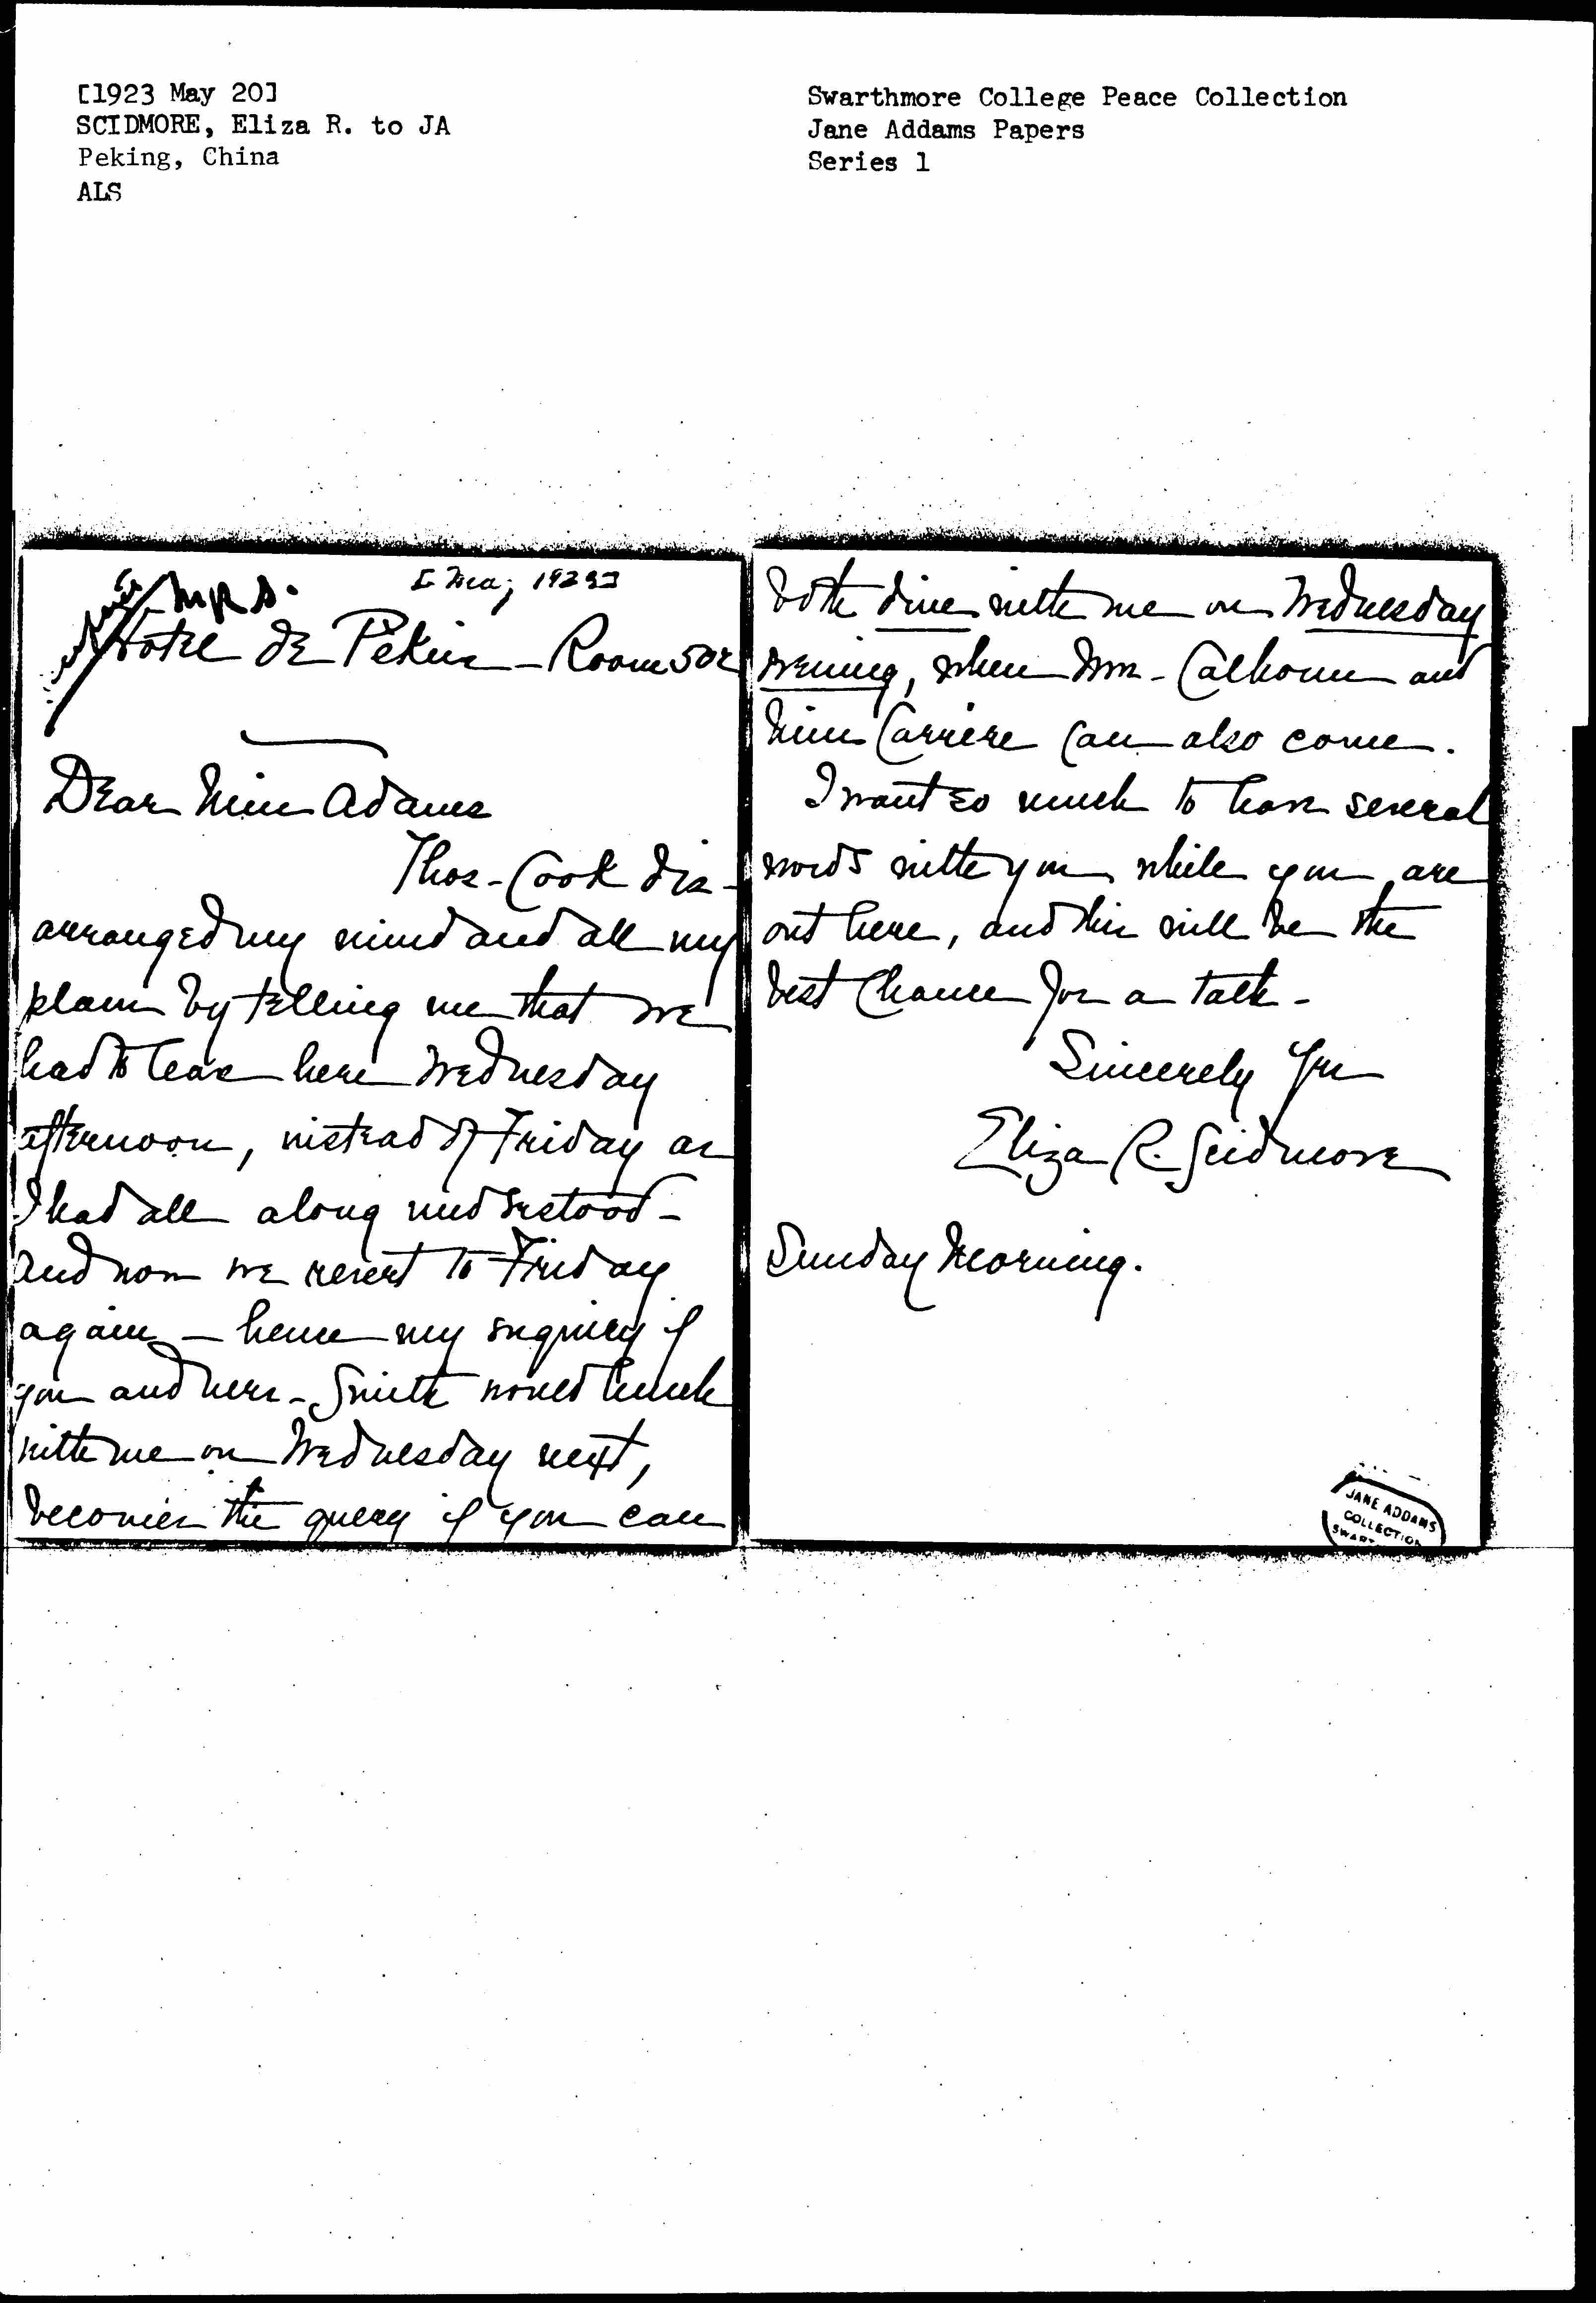 [1923 May 20]
SCIDMORE, Eliza R. to JA
Peking, China
ALS
Swarthmore College Peace Collection
Jane Addams Papers
Series 1
[May 1923]
Mrs.
Hotel de Pekin - Room 502
Dear Miss Adams
Thos - Cook dis-
arranged my mind and all my
plans by telling me that we
had to leave here Wednesday
afternoon, instead of Friday as
I had all along understood -
and now we revert to Friday
again - hence my inquiry if
you and Miss - Smith would lunch
with me on Wednesday next,
becomes the query if you can
both dine with me on Wednesday
evening, when Mrs - Calhoun and
Miss Carrere can also come.
I want so much to have several
words with you while you are
out here, and this will be the
best chance for a talk -
Sincerely Yrs
Eliza R. Scidmore
Sunday Morning.
JANE ADDAMS
COLLECTION
SWART